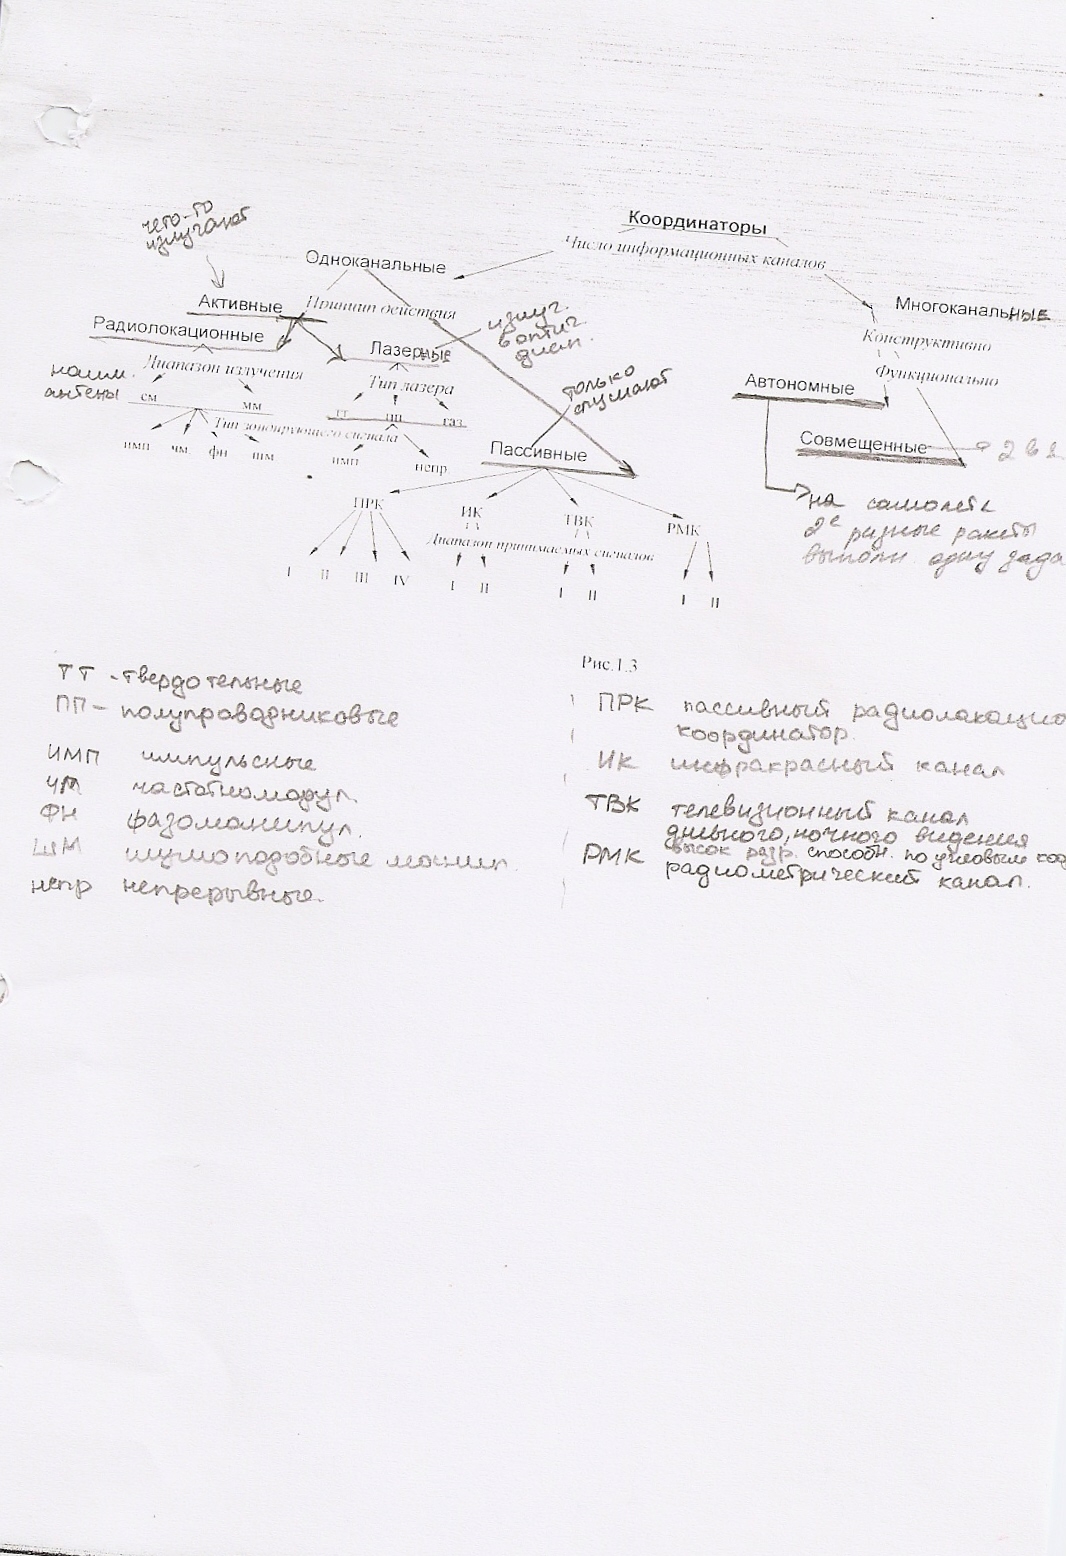 Координаторы
Число информационных каналов
чего-то
излучают
Одноканальные
Многоканальные
Активные
Принцип действия
излуч.
в оптич.
диап.
Радиолокационные
Лазерные
Конструктивно
Диапазон излучения
Тип лазера
только
Функционально
Автономные
антены
см
мм
тт
пп
газ
Тип зондирующего сигнала
имп
чм
фн
шм
имп
непр.
Пассивные
Совмещенные
2 в 1
ПРК
ИК
ТВК
РМК
Диапазон принимаемых сигналов
на самолете
2е разные ракеты
выполн. одну зада
I
II
III
IV
I
II
I
II
I
II
Рис.1.3
ТТ - твердотельные
ПП - полупроводниковые
ИМП импульсные
ЧМ частотномодул.
ФН фазоманипул.
ШМ шумоподобные
непр непрерывные.
ПРК пассивный радиолокацио
координатор.
ИК инфракрасный канал
ТВК телевизионный канал
дневного, ночного видения
высок разр. способн. по угловым коо
РМК радиометрический канал.